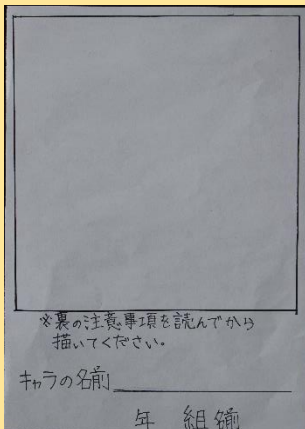 ※裏の注意事項を読んでから
描いてください。
キャラの名前
年 組 名前